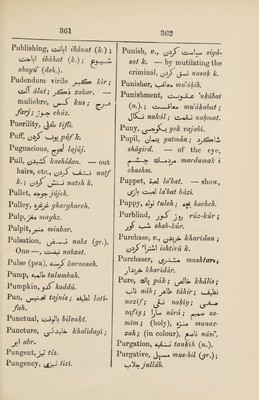 361
Publishing, اثبات ibánat (k.);
اباحت ibáhat (k.); شيوع
shuyú' (dsh.).
Pudendum virile كير kír;
آلت álat; ذكر zakar. —
muliebre, كس kus; فرج
farj; چوز chúz.
Puerility, طفلي tiflí.
Puff, پوف púf k.
Pugnacious, لجوج lajúj.
Pull, كشيدن kashídan. — out
hairs, etc., نتف كردن natf
k.; نتش كردن natsh k.
Pullet, جوجه jújeh.
Pulley, غرغره gharghareh.
Pulp, مغز maghz.
Pulpit, منبر minbar.
Pulsation, نبض nabz (gr.).
One —, نبضت nabzat.
Pulse (pea), كرسنه karsaneh.
Pump, تلمبه tulumbah.
Pumpkin, كدو kaddú.
Pun, تجنيس tajnís; لطيفه latí-
fah.
Punctual, بالوقت bilvakt.
Puncture, خلليدگي khalídagí;
ابر abr.
Pungent, تيز tíz.
Pungency, تيزي tízí.
362
Punish, v., سياست كردن siyá-
sat k. — by mutilating the
criminal, نسق كردن nasak k.
Punisher, معاقب mu'ákib.
Punishment, عقوبت 'ukúbat
(n.).; معاقبت mu'ákabat;
نكال nakál; نقمت nakmat.
Puny, يكوجبي yek vajabí.
Pupil, يتمان yatmán; شاگرد
shágird. — of the eye,
مردمك چشم mardumak i
chashm.
Puppet, لعبت la'bat. — show,
لعبت بازي la'bat bází.
Puppy, توله tuleh; بچه bacheh.
Purblind, روز كور rúz-kúr;
شب كور shab-kúr.
Purchase, v., خريدن kharídan;
اشترا كردن ishtirá k.
Purchaser, مشتري mushtarí;
خريدار kharídár.
Pure, پاك pák; خالص khális;
ناب náb; طاهر táhir; نظيف
nazíf; نقي nakíy; صفي
safíy; سارا sárá; صميم sa-
mím; (holy), منزه munaz-
zah; (in colour), ناصع násí'.
Purgation, تنقيه tankíh (n.).
Purgative, مسهل mus-hil (gr.);
جلاب julláb.